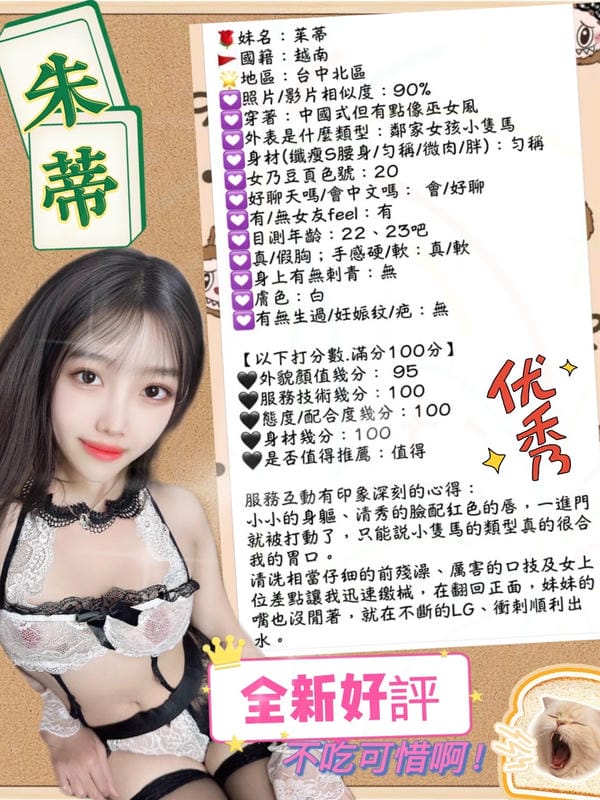 朱
蒂
妹名：茱蒂
國籍：越南
地區：台中北區
照片/影片相似度：90%
穿著：中國式但有點像巫女風
外表是什麼類型：鄰家女孩小隻馬
身材(纖瘦S腰身/勻稱/微肉/胖)：勻稱
女乃豆頁色號：20
好聊天嗎/會中文嗎： 會/好聊
有/無女友feel：有
目測年齡：22、23吧
真/假胸；手感硬/軟：真/軟
身上有無刺青：無
膚色：白
有無生過/妊娠纹/疤：無
【以下打分數.滿分100分】
外貌顏值幾分： 95
服務技術幾分：100
態度/配合度幾分：100
身材幾分：100
是否值得推薦：值得
优秀
服務互動有印象深刻的心得：
小小的身軀、清秀的臉配紅色的唇，一進門
就被打動了，只能說小隻馬的類型真的很合
我的胃口。
清洗相當仔細的前殘澡、厲害的口技及女上
位差點讓我迅速繳械，在翻回正面，妹妹的
嘴也沒閒著，就在不斷的LG、衝刺順利出
水。
全新好評
不吃可惜啊！